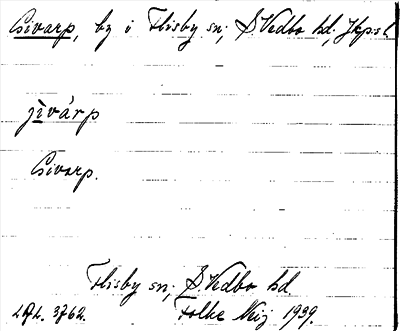 Givarp, by i Flisby sn; S Vedbo hd; Jkp:s l
jìvárp
Givarp.
Flisby sn; S. Vedbo hd
Folke Neij 1939.